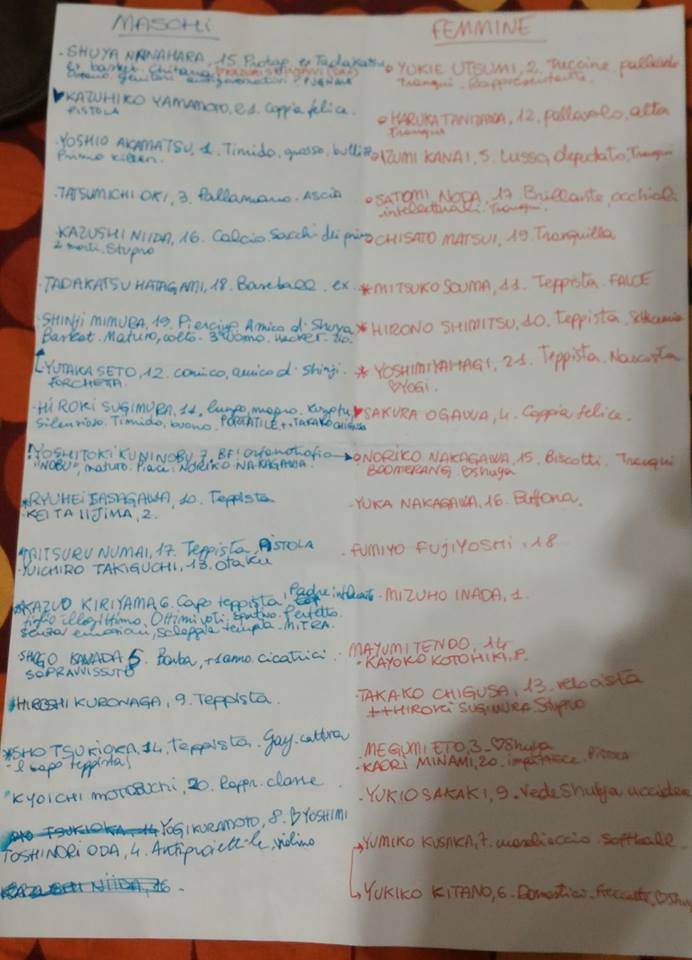 MASCHI
·SHUYA NANAHARA, 15. Protag. ex Tadakatsu
Ex basket. Chitarra
PUGNALE
♥KAZUHIKO YAMAMOTO, 21. Coppia felice.
PISTOLA
·YOSHIO AKAMATSU, 1. Timido, grosso, bullizz
Primo killer.
·TATSUMICHI OKI, 3. Pallamano. Ascia
·KAZUSHI NIIDA, 16. Calcio. Sacchi dei primi
2 morti, Stupro
·TADAKATSU HATAGAMI, 18. Baseball. ex
·SHINJI MIMURA, 19. Piercing. Amico di Shuya
Basket. Maturo, colto. 3° uomo. Hacker. zio.
YUTAKA SETO, 12. comico, amico di Shinji.
FORCHETTA.
·HIROKI SUGIMURA, 11. lungo, magro.
silenzioso. Timido, buono. PORTATILE ++TAKAKO CHIGUSA
!YOSHITOKI KUNINOBU, 7. BF! orfanotrofio
"NOBU", maturo. Piace: NORIKO NAKAGAWA.
*RYUHEI SASAGAWA, 10. Teppista
·KEITA IIJIMA, 2.
*MITSURU NUMAI, 17. Teppista, PISTOLA
·YUICHIRO TAKIGUCHI, 13. otaku
*KAZUO KIRIYAMA, 6. Capo teppista, Padre
figlio illegittimo. Ottimi voti, sportivo. Perfetto.
senza emozioni, MITRA.
·SHOGO KAWADA 5. Barba, +1 anno. cicatrici.
SOPRAVVISSUTO
*HIROSHI KURONAGA, 9. Teppista.
*SHO TSUKIOKA, 14. Teppista. Gay. cattura
il capo teppista!
·KYOICHI MOTOBUCHI, 20. Rappr. classe
SHO TSUKIOKA, 14 YOGI KURAMOTO, 8. ♡YOSHIMI
TOSHINORI ODA, 4. Antiproiettile, violino
KAZUSHI NIIDA, 16.
FEMMINE
YUKIE UTSUMI, 2. Treccine, pallavolo
Tranqui. Rappresentante.
HARUKA TANIZAWA, 12. pallavolo, alta
Tranqui
IZUMI KANAI, 5. Lusso, deputato, Tranqui
SATOMI NODA, 17. Brillante, occhiali
intellettuali. Tranqui.
CHISATO MATSUI, 19. Tranquilla
*MITSUKO SOUMA, 11. Teppista. FALCE
*HIRONO SHIMITSU, 10. Teppista.
*YOSHIMI YAHAGI, 21. Teppista. Nascosta
♡YOGI.
♥SAKURA OGAWA, 4. Coppia felice.
NORIKO NAKAGAWA, 15. Biscotti. Tranqui
BOOMERANG. ♡Shuya
·YUKA NAKAGAWA, 16. Buffona.
·FUMIYO FUJIYOSHI, 18
·MIZUHO INADA, 1.
MAYUMI TENDO, 14
·KAYOKO KOTOHIKI, 8.
·TAKAKO CHIGUSA, 13. velocista
++HIROKI SUGIMURA. Stupro
·MEGUMI ETO, 3. ♡Shuya
·KAORI MINAMI, 20. impazzisce. PISTOLA
·YUKIO SAKAKI, 9. Vede Shuya uccidere
YUMIKO KUSAKA, 7. Softball
YUKIKO KITANO, 6. ♡Shuya